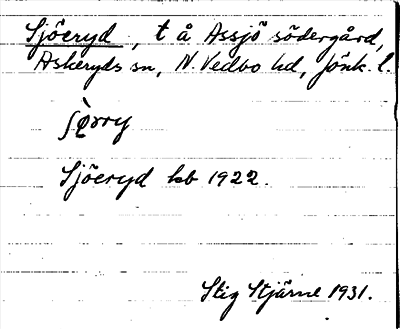 Sjöeryd, t å Assjö södergård,
Askeryds sn, N. Vedbo hd, Jönk. l.
Sjöeryd kb 1922.
Stig Stjärne 1931.